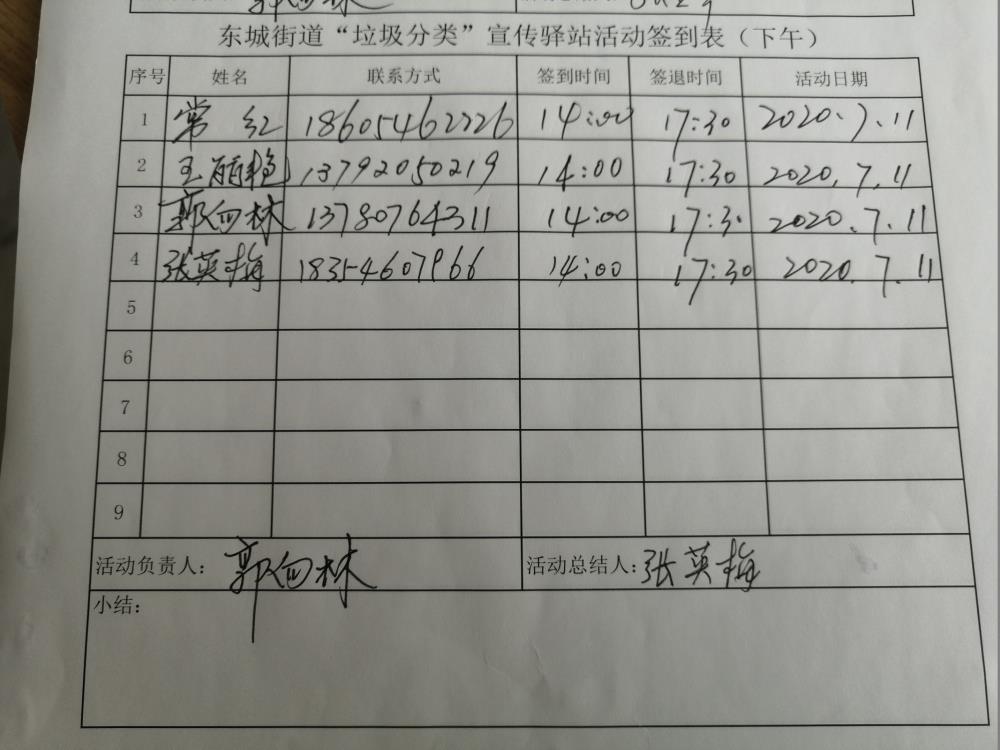 东城街道“垃圾分类”宣传驿站活动签到表（下午）
序号 姓名 联系方式 签到时间 签退时间 活动日期
1 常红 18605462226 14:00 17:30 2020.7.11
2 王丽艳 13792050219 14:00 17:30 2020.7.11
3 郭向林 13780764311 14:00 17:30 2020.7.11
4 张英梅 18354607966 14:00 17:30 2020.7.11
5
6
7
8
9
活动负责人：郭向林 活动总结人：张英梅
小结：